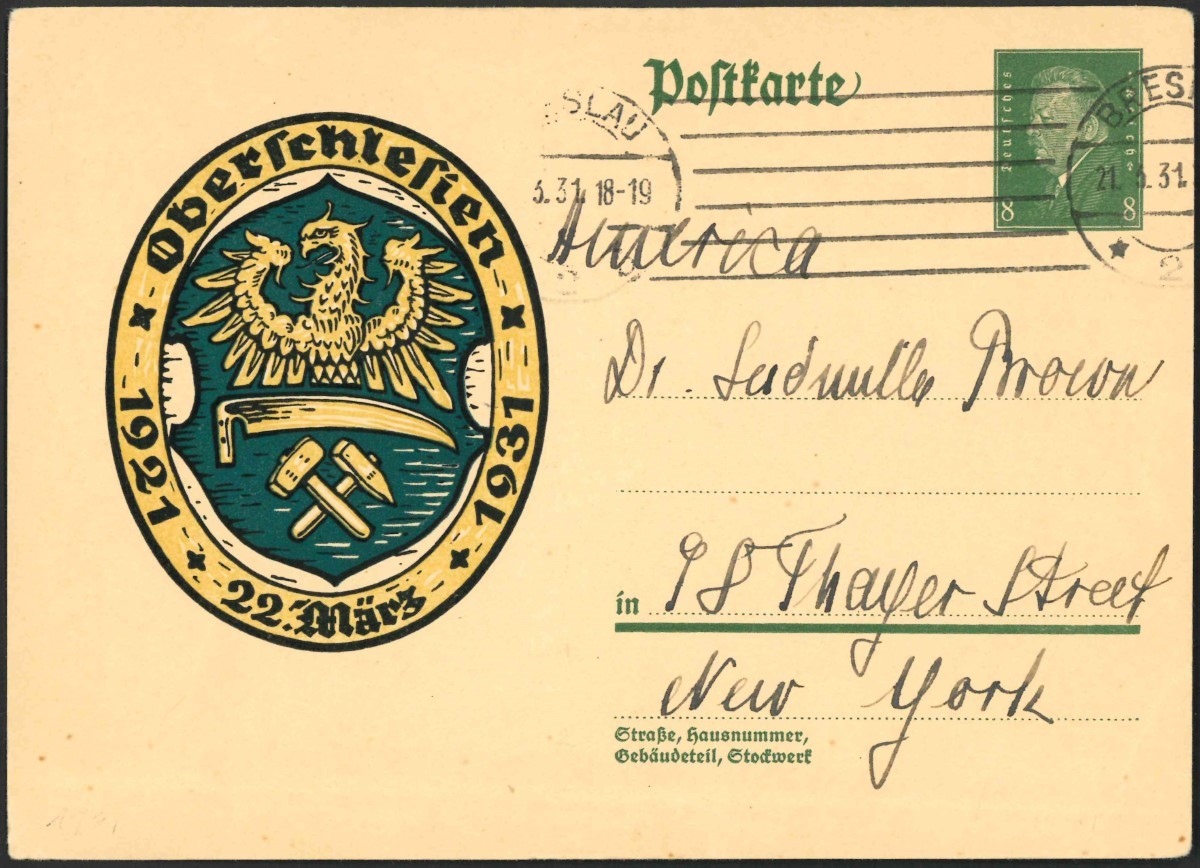 Oberschlesien
1921 1931
22. März
Postkarte
Deutsches Reich
8 8
SLAU
3.31.18-19
BRES
21. 3.31.
2
America
Dr. Ludmilla Brown
in 98 Thayer Street
New York
Straße, Hausnummer,
Gebäudeteil, Stockwerk